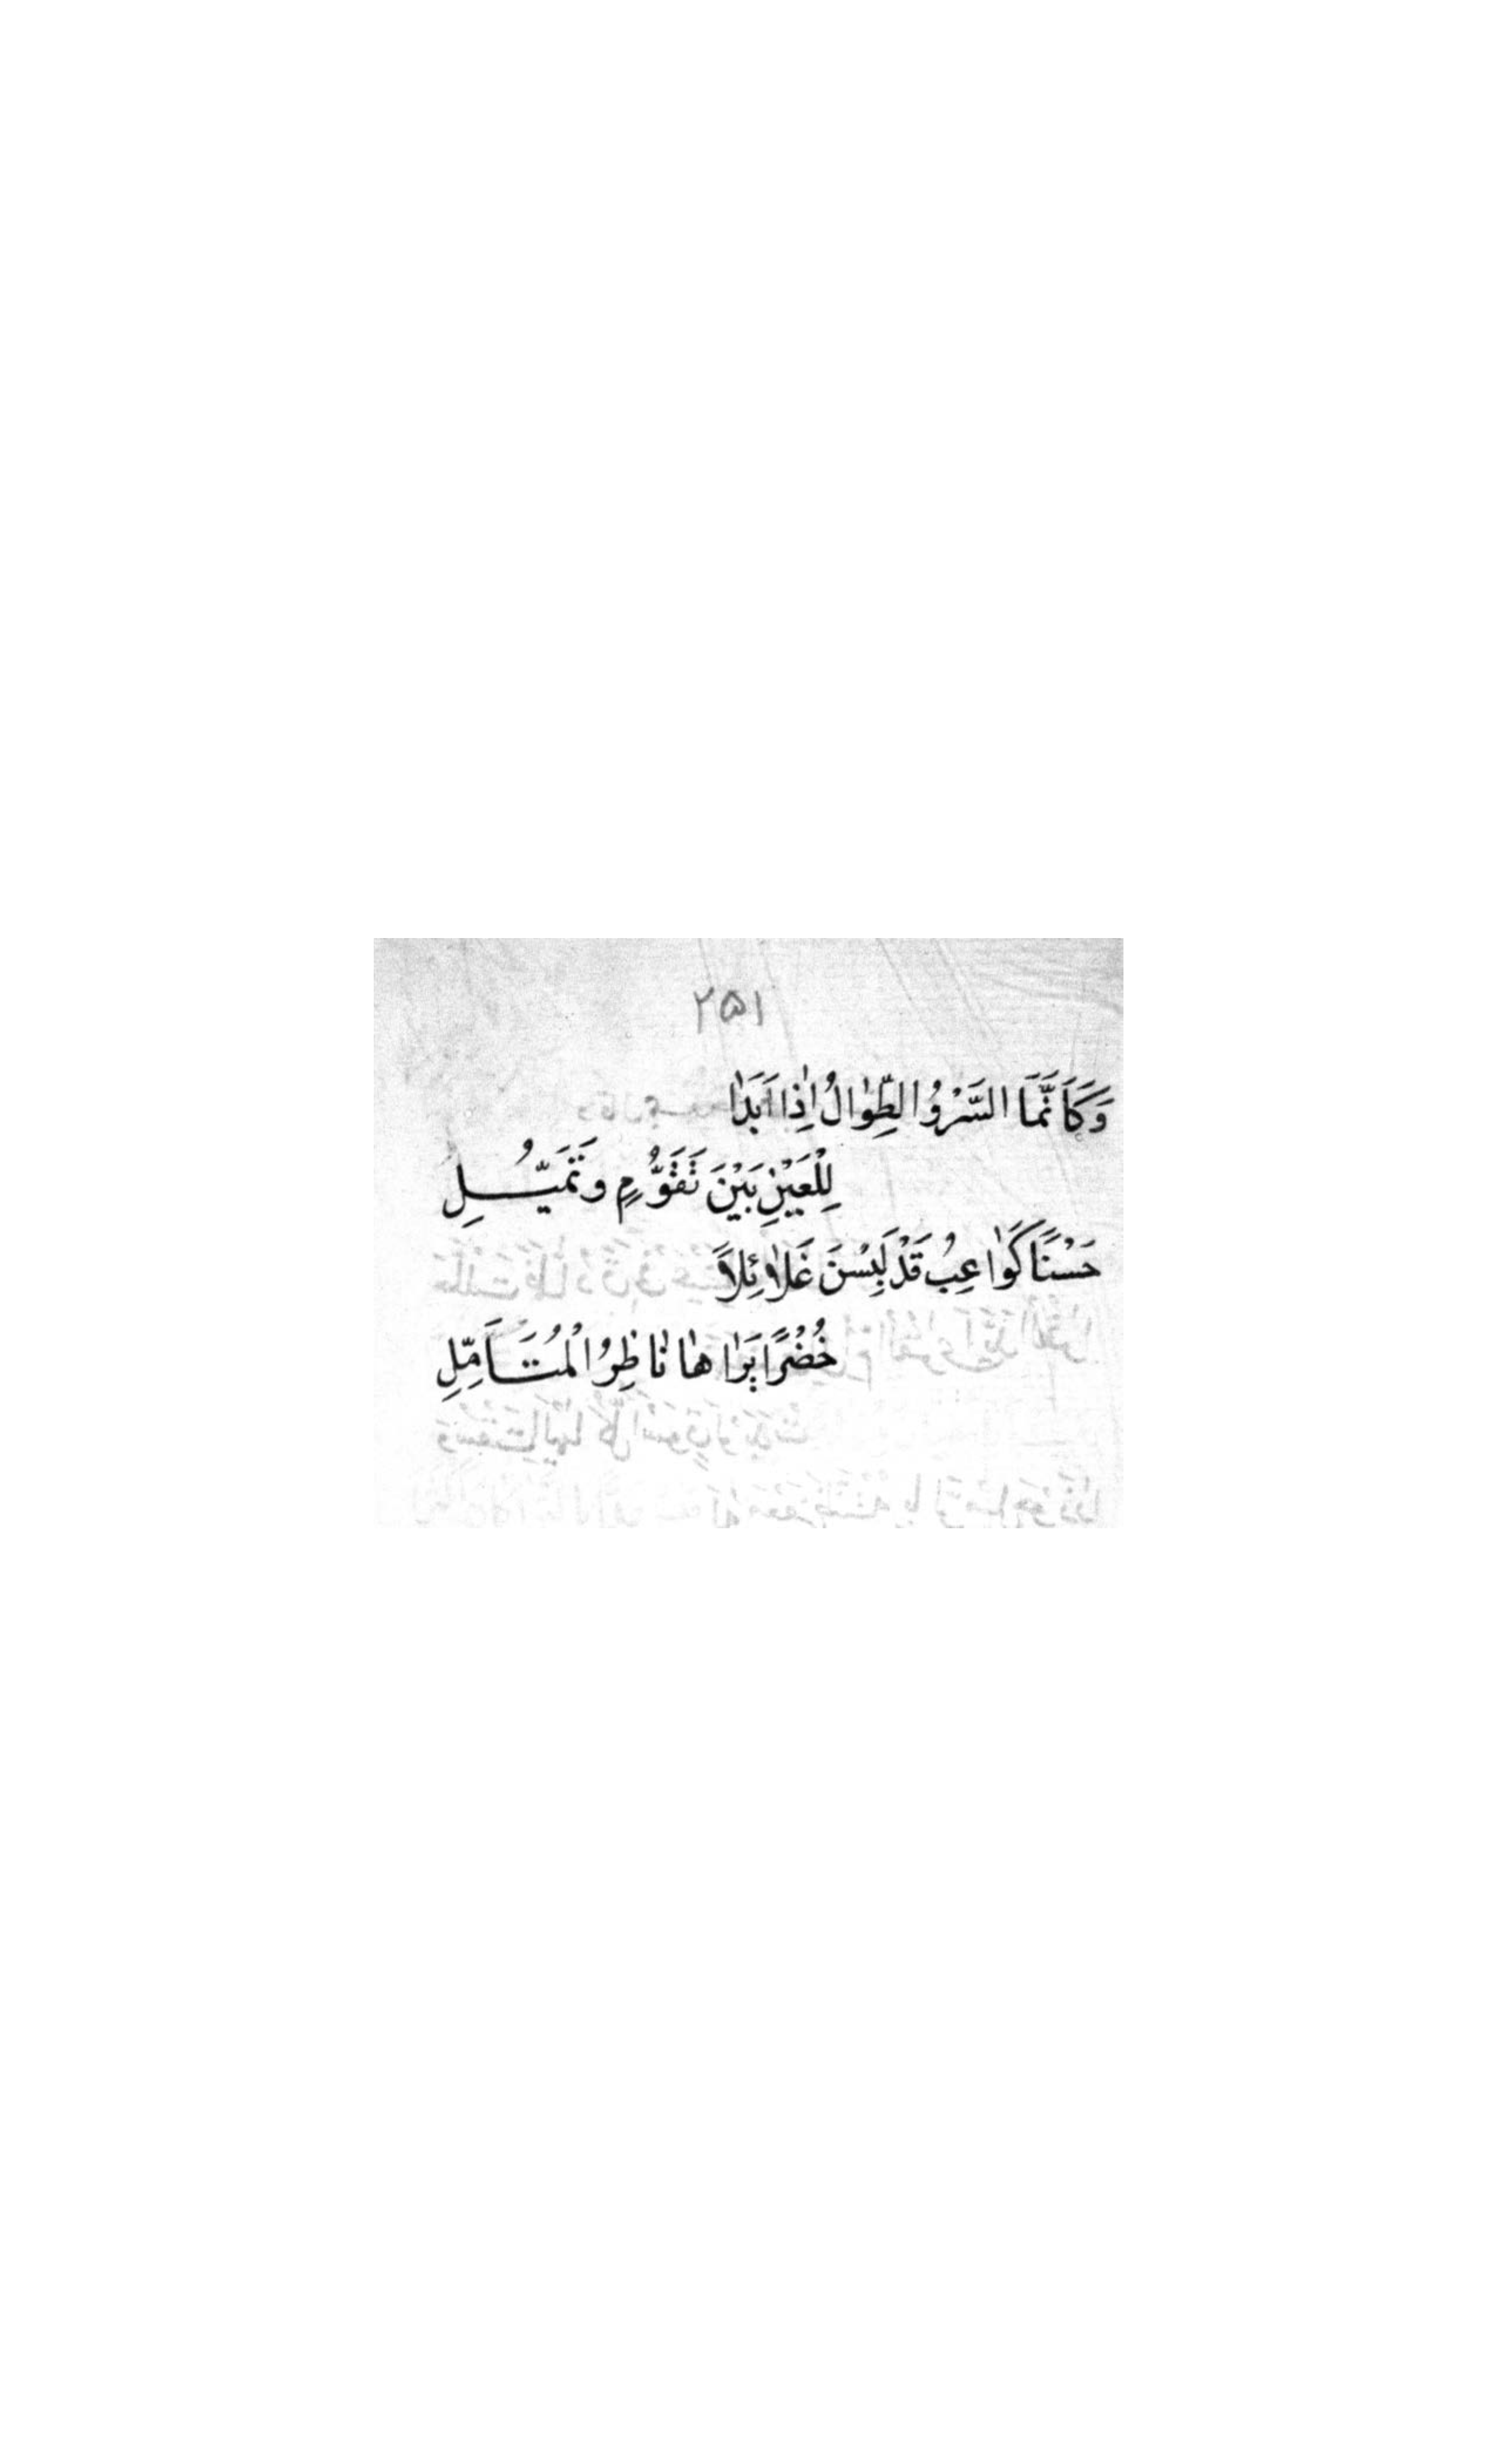 ۲۵۱
وَكَاَنَّمَا السَّرْوُ الطِّوٰالُ اِذٰا اَبَدٰا
لِلْعَيْنِ بَيْنَ تَقَوُّمٍ وَتَمَيُّلِ
حَسْنًا كَوٰاعِبُ قَدْ لَبِسْنَ غَلاٰئِلاً
خُضْرًا يَرٰاهٰا نٰاظِرُ الْمُتَاَمِّلِ